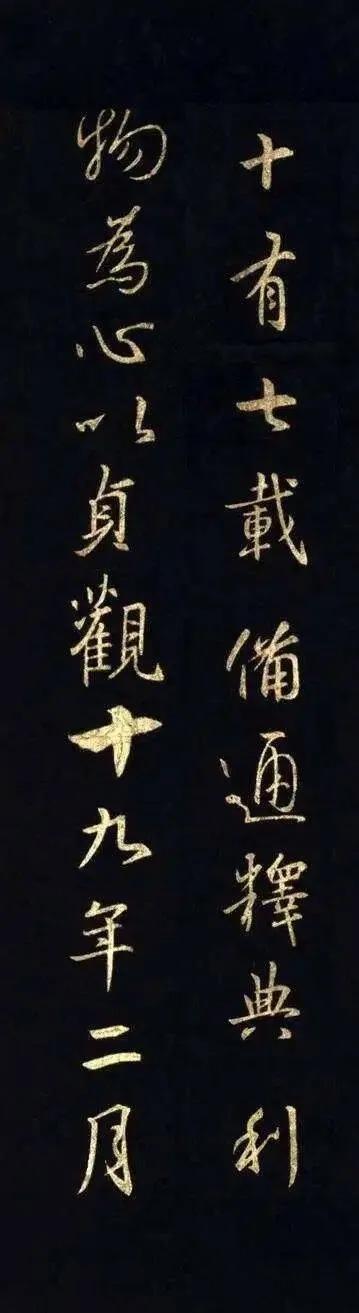 十有七載備通釋典利
物為心以貞觀十九年二月